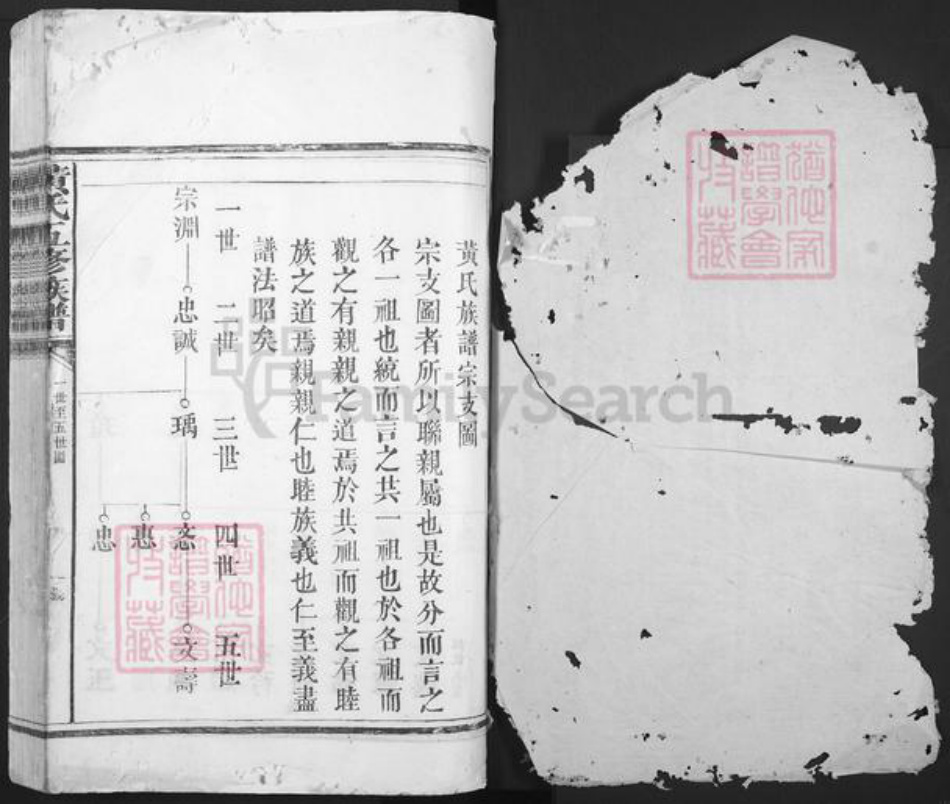 黃氏族譜宗支圖
宗支圖者所以聯親屬也是故分而言之
各一祖也統而言之共一祖也於各祖而
觀之有親親之道焉於共祖而觀之有睦
族之道焉親親仁也睦族義也仁至義盡
譜法昭矣
一世 二世 三世 四世 五世
宗淵 忠誠 瑀 忞 文壽
惪
忠
黃氏五修族譜
一世至五世圖
FamilySearch